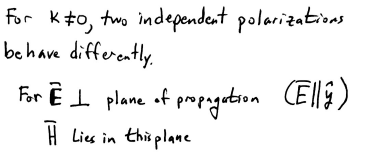 For K≠0, two independent polarizations
behave differently.
For Ē ⊥ plane of propagation (Ē∥ŷ)
H̄ Lies in this plane